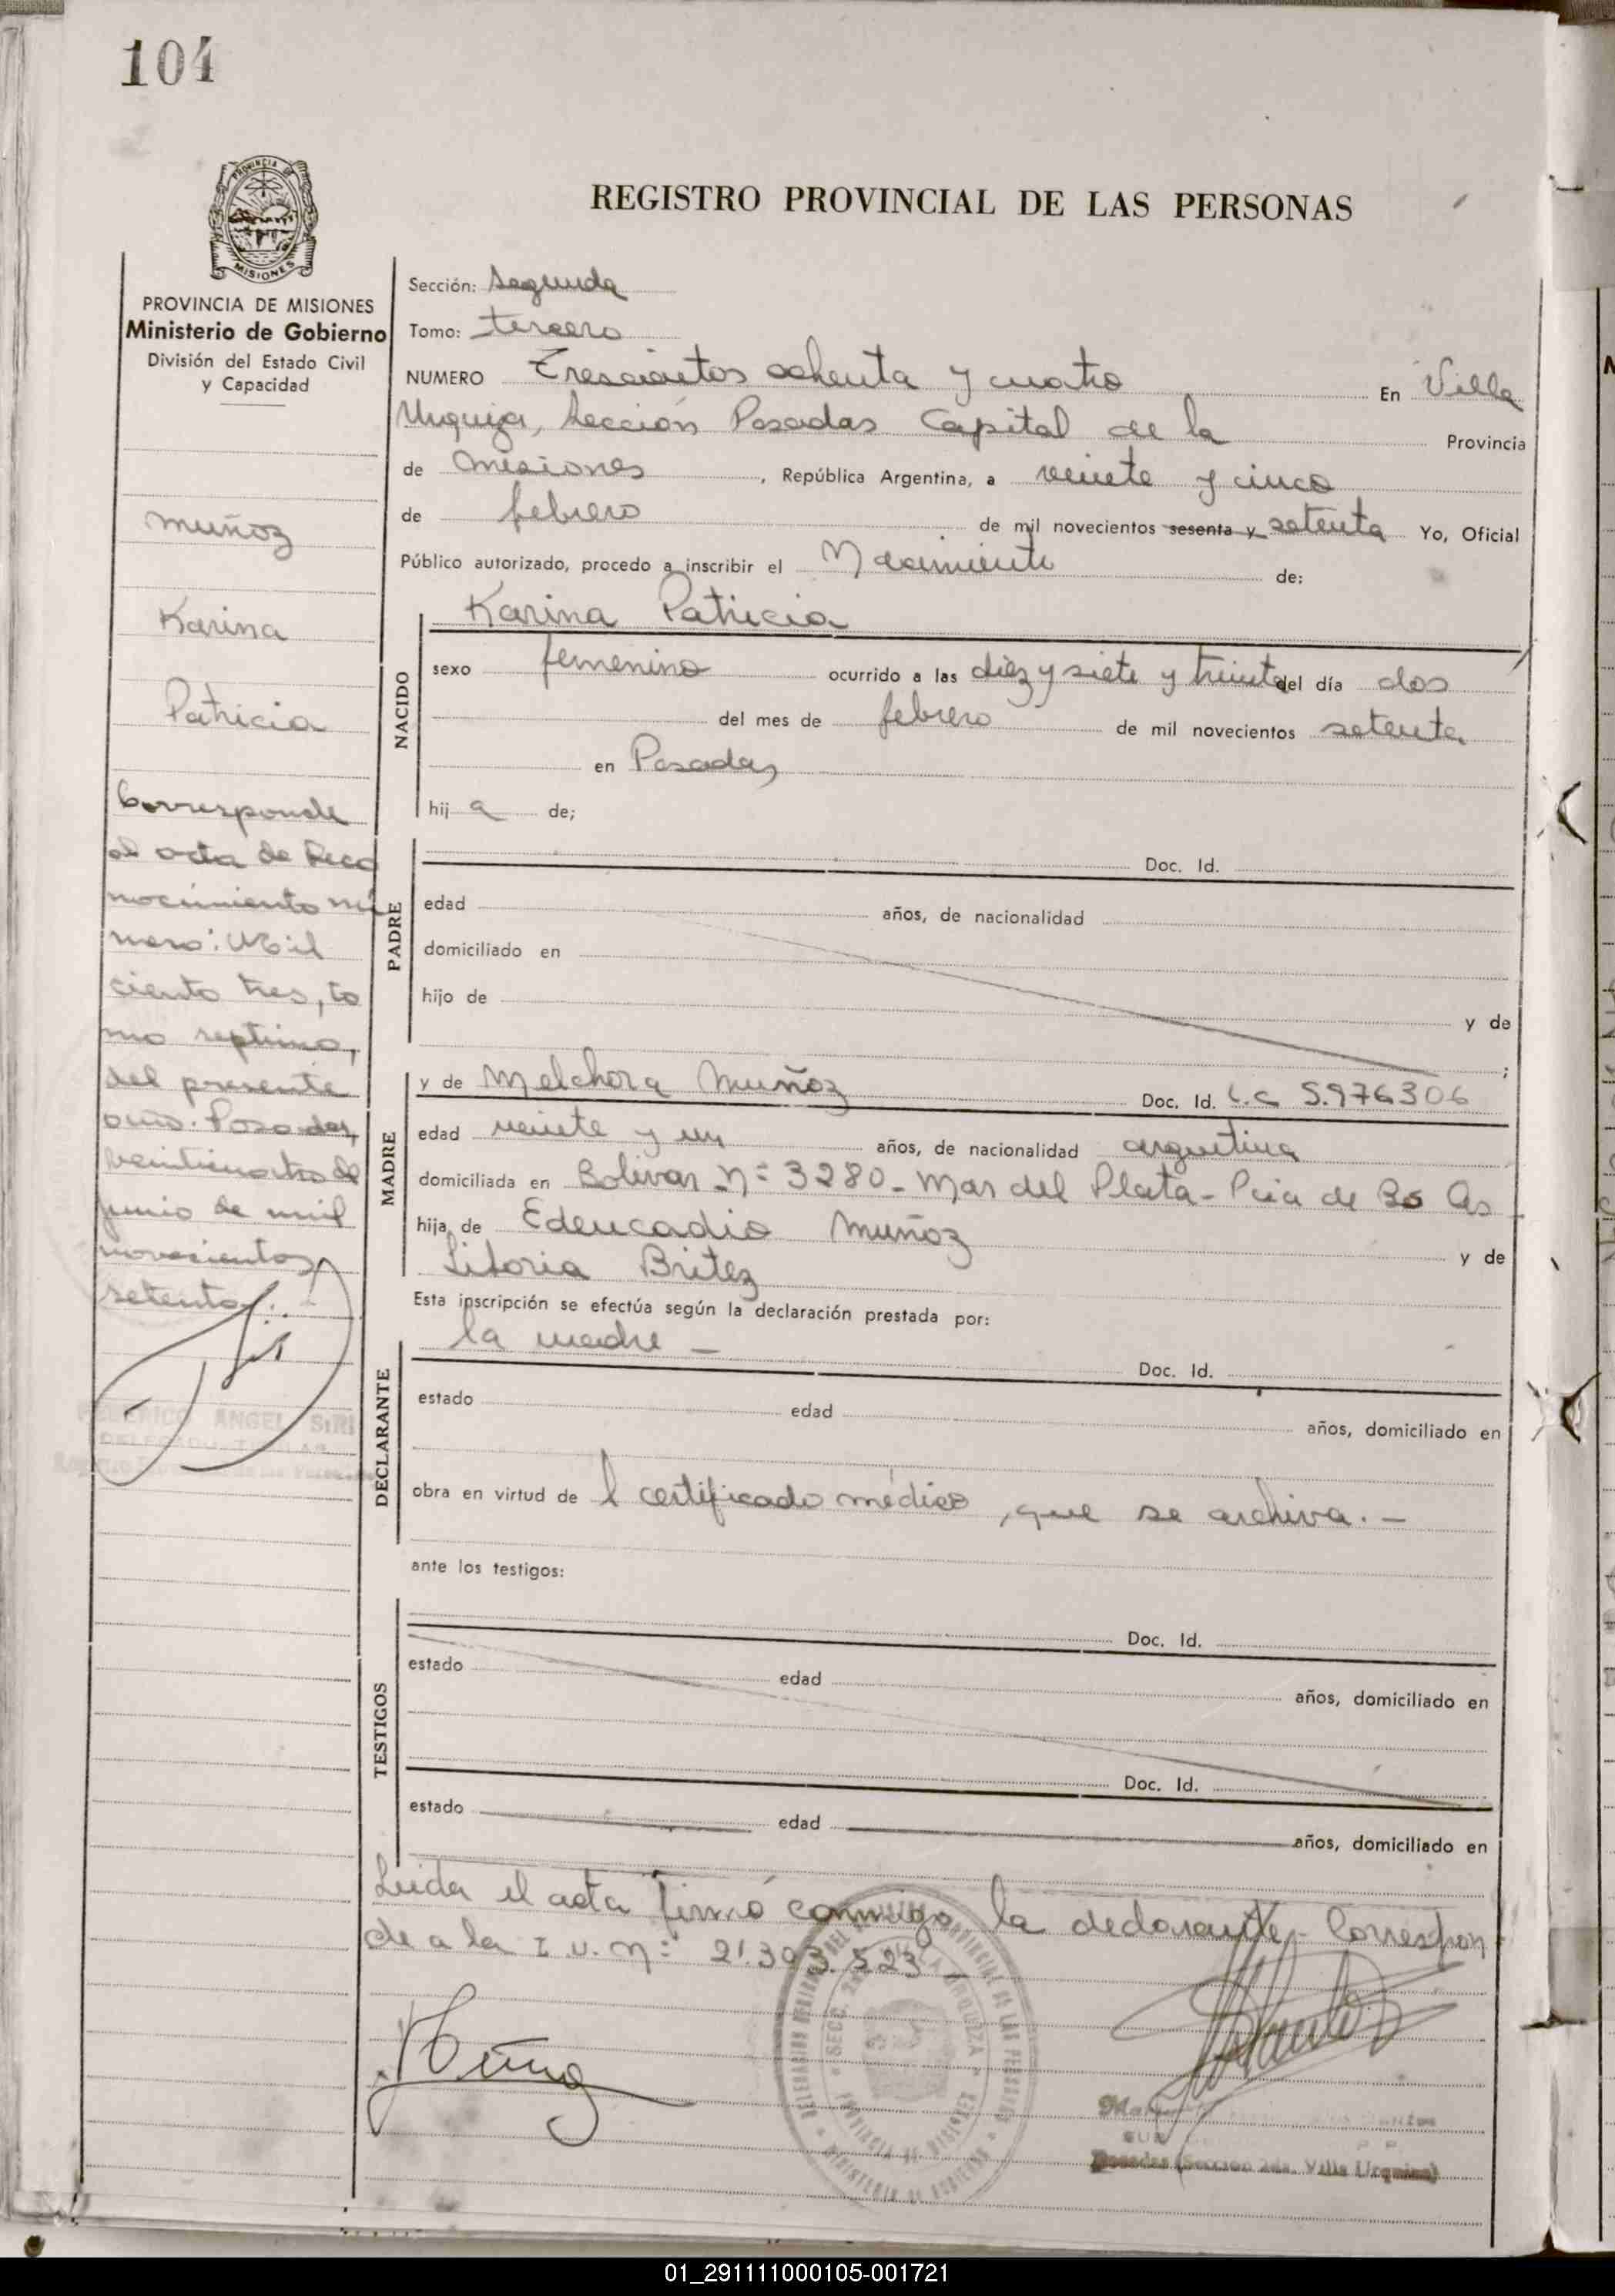 104
PROVINCIA
MISIONES
REGISTRO PROVINCIAL DE LAS PERSONAS
PROVINCIA DE MISIONES
Ministerio de Gobierno
División del Estado Civil
y Capacidad
muñoz
Karina
Patricia
Corresponde
al acta de Reco
nocimiento nú
mero: Mil
ciento tres, to
mo septimo,
del presente
año. Posadas,
veinticuatro de
junio de mil
novecientos
setenta.
FEDERICO ANGEL SIRI
Sección: Segunda
Tomo: tercero
NUMERO Trescientos ochenta y cuatro En Villa
Urquiza, Sección Posadas Capital de la Provincia
de Misiones, República Argentina, a veinte y cinco
de febrero de mil novecientos sesenta y setenta Yo, Oficial
Público autorizado, procedo a inscribir el Nacimiento de:
Karina Patricia
NACIDO
sexo femenino ocurrido a las diez y siete y treinta del día dos
del mes de febrero de mil novecientos setenta
en Posadas
hija de;
PADRE
Doc. Id.
edad años, de nacionalidad
domiciliado en
hijo de y de
;
MADRE
y de Melchora Muñoz Doc. Id. L.C 5.976306
edad veinte y un años, de nacionalidad argentina
domiciliada en Bolivar Nº 3280 - Mar del Plata - Pcia de Bs As
hija de Edeucadio Muñoz y de
Litoria Britez
Esta inscripción se efectúa según la declaración prestada por:
DECLARANTE
la madre - Doc. Id.
estado edad años, domiciliado en
obra en virtud de l certificado médico, que se archiva. -
ante los testigos:
TESTIGOS
Doc. Id.
estado edad años, domiciliado en
Doc. Id.
estado edad años, domiciliado en
Leida el acta firmó conmigo la declarante - Correspon
de a la I.U. Nº 2.303.523
Posadas (Sección 2da. Villa Urquiza)
01_291111000105-001721